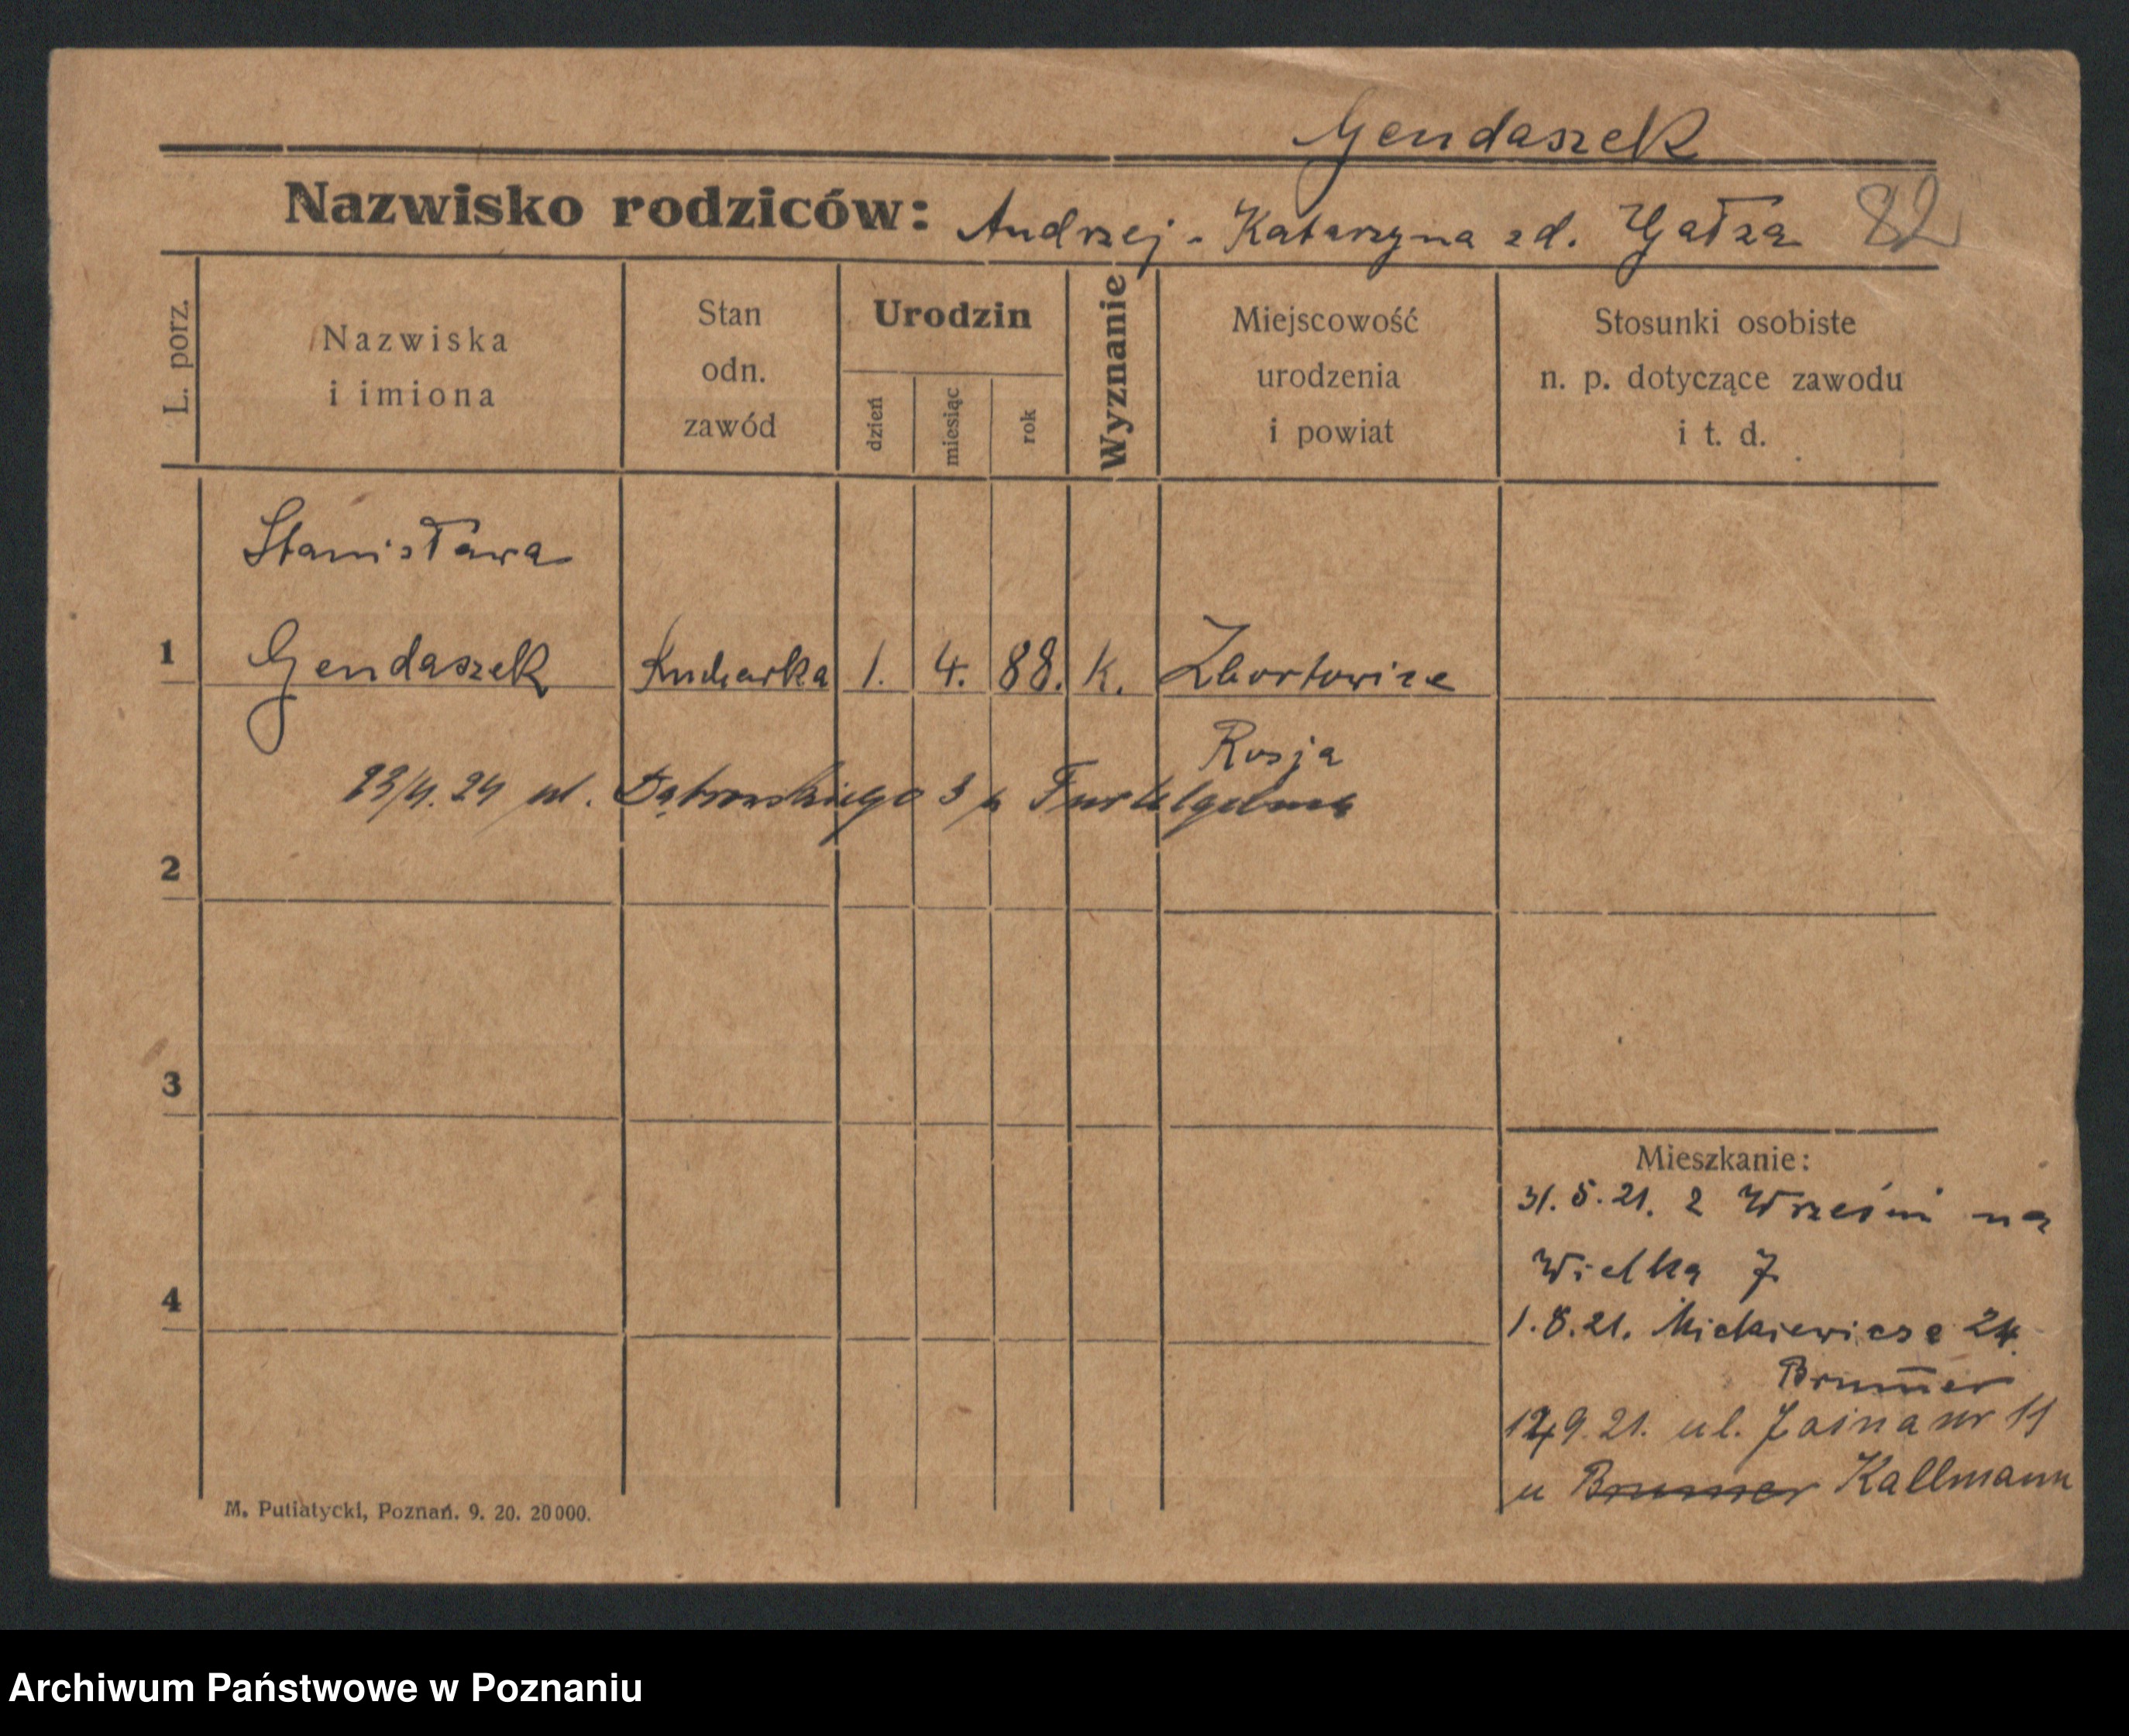 Gendaszek
Nazwisko rodziców: Andrzej - Katarzyna zd. Gałza 82
L. porz.
Nazwiska
i imiona
Stan
odn.
zawód
Urodzin
dzień
miesiąc
rok
Wyznanie
Miejscowość
urodzenia
i powiat
Stosunki osobiste
n. p. dotyczące zawodu
i t. d.
Stanisława
1 Gendaszek Kucharka 1. 4. 88. k. Zbortowice
Rosja
23/4. 24 ul. Dąbrowskiego 3
2
3
4
Mieszkanie:
31. 5. 21. z Wrześni na
Wielką 7
1. 8. 21. Mickiewicza 24.
Brum̅er
9. 21. ul. Jasna nr 11
u Brumer Kallmann
M. Putiatycki, Poznań. 9. 20. 20000.
Archiwum Państwowe w Poznaniu